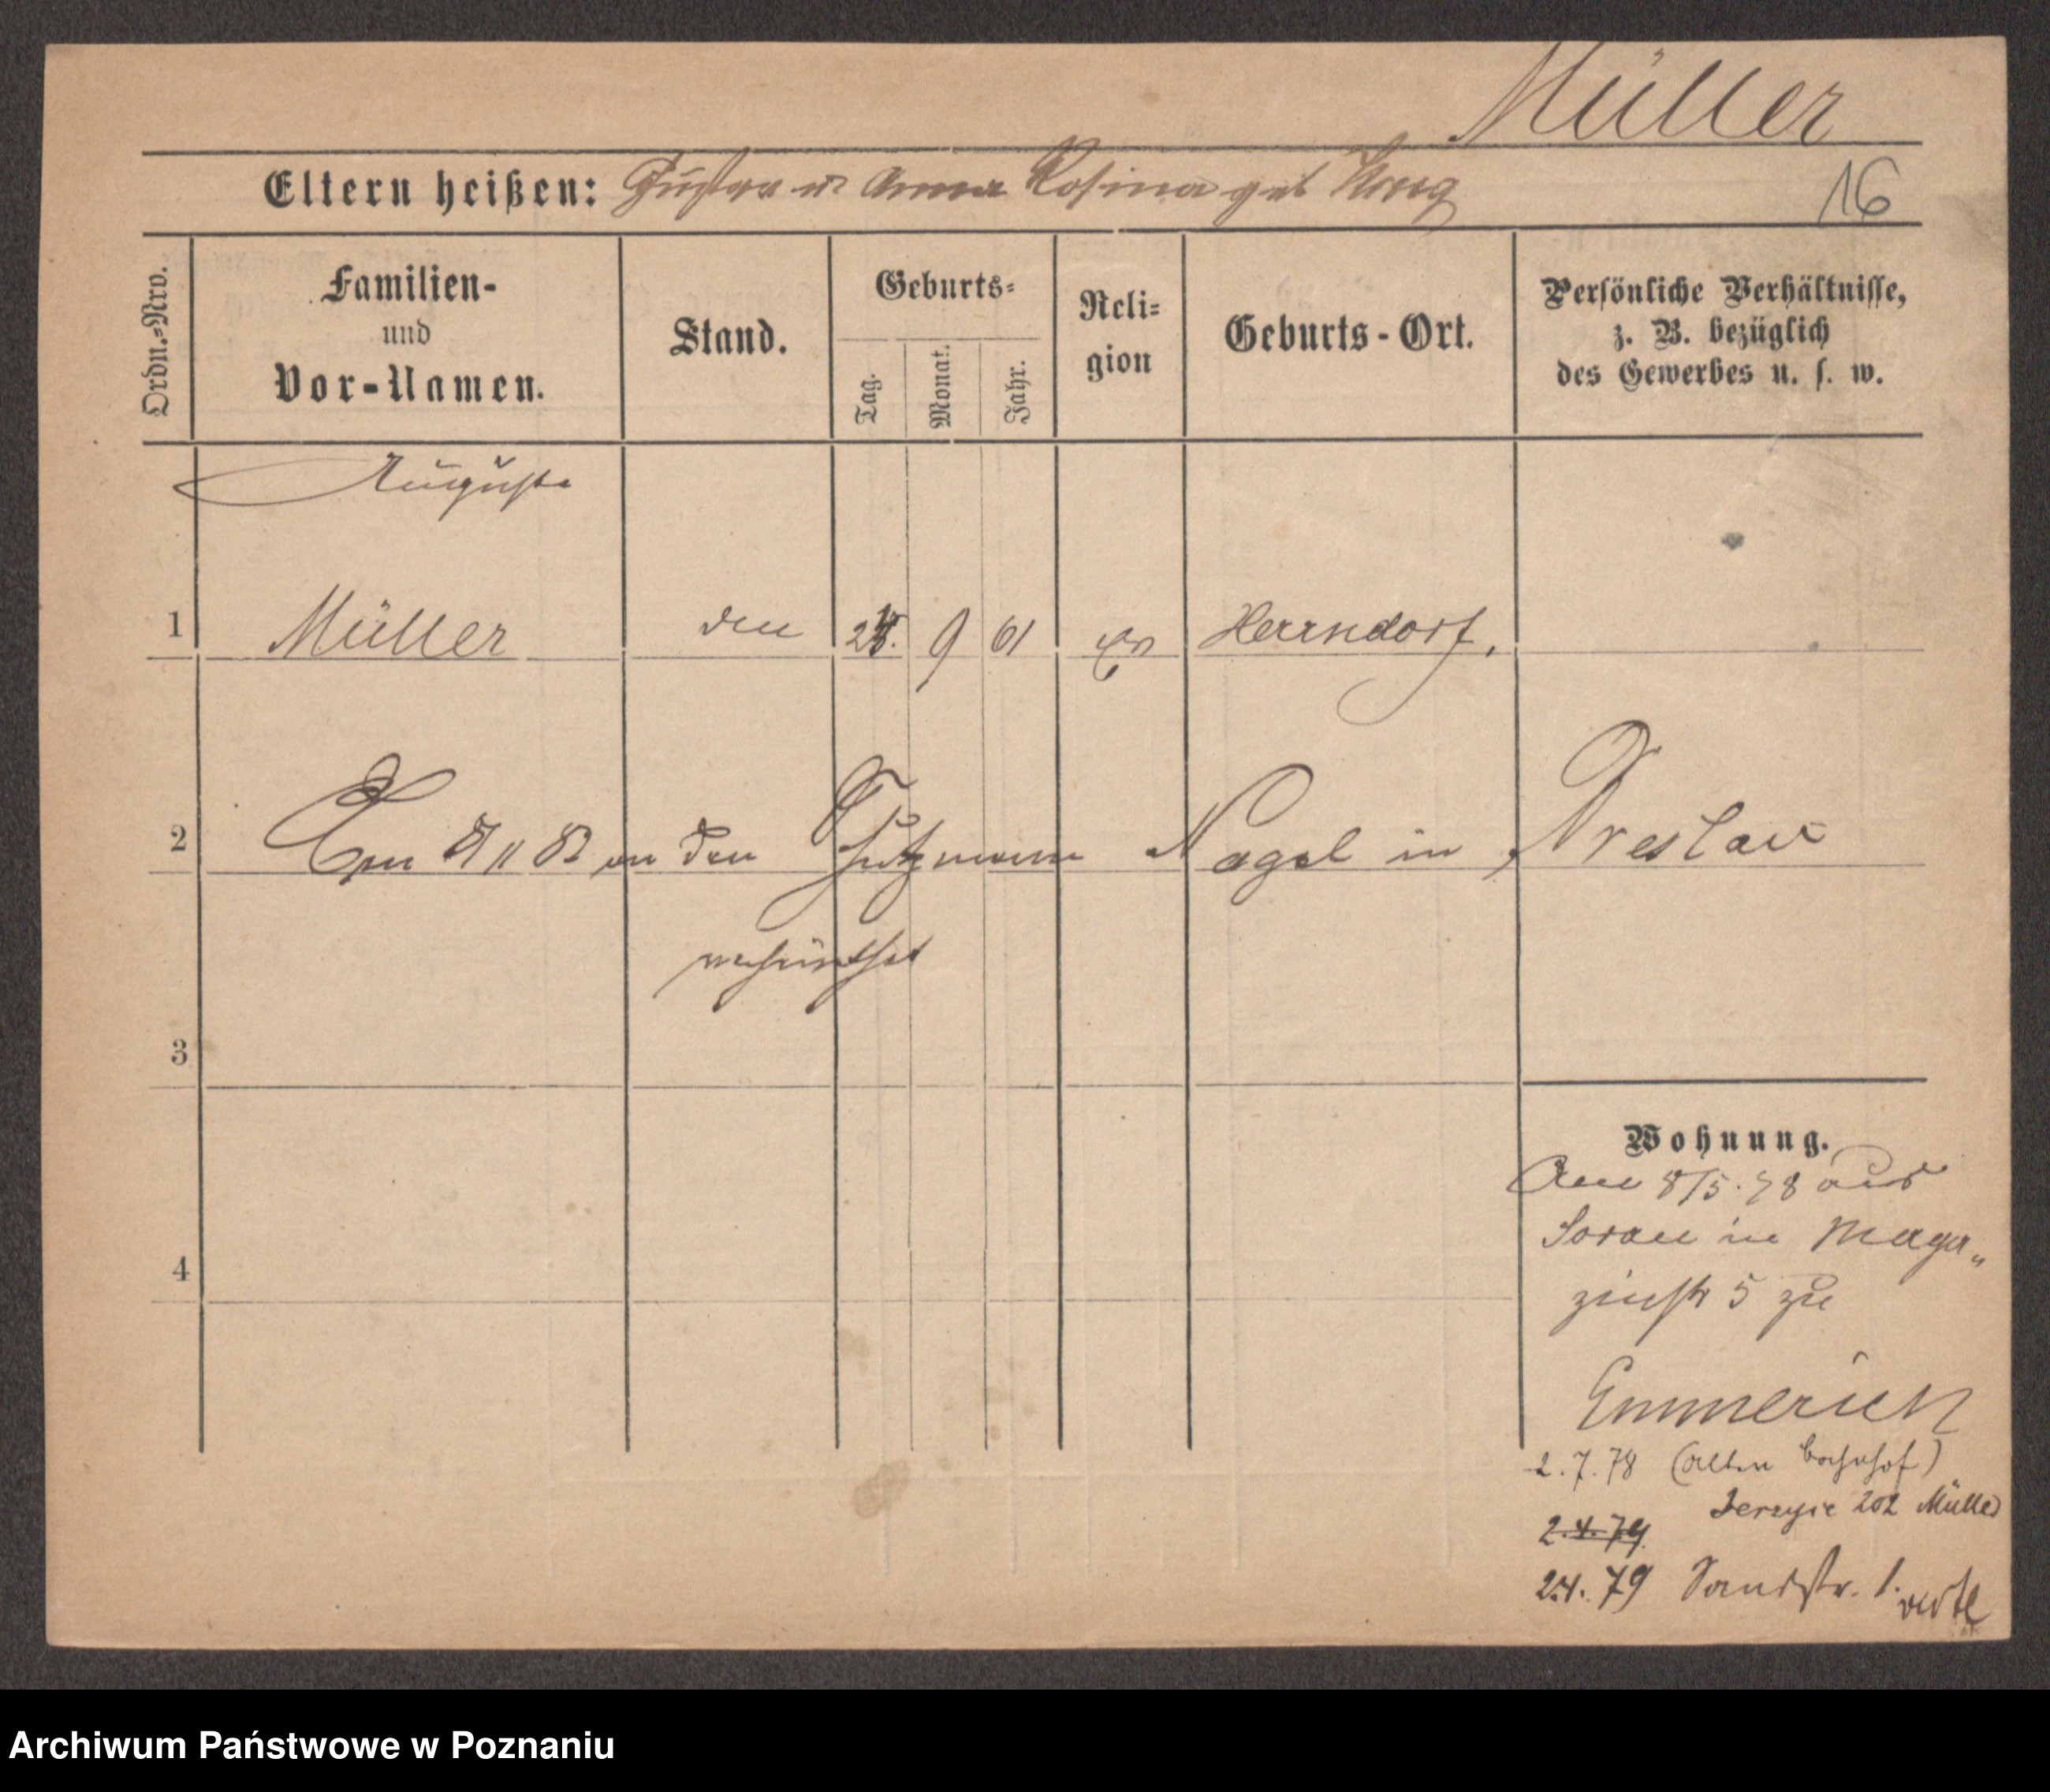 Müller
Eltern heißen: Gustav u. Anna Rosina geb
16
Ordn.-Nro.
Familien-
und
Vor-Namen.
Stand.
Geburts-
Tag.
Monat.
Jahr.
Reli-
gion
Geburts-Ort.
Persönliche Verhältnisse,
z. B. bezüglich
des Gewerbes u. s. w.
Auguste
1 Müller 9 61 ev Herrndorf.
2 11 82 an den Schutzmann Nagel in Breslau
verheirathet
3
4
Wohnung.
Am 8/5. 78 aus
Sorau in Maga„
zinstr 5 zu
Emmerich
2.7.78 (alten Bahnhof)
Jerzyce 202 Müller
2.4.79.
2.4.79 Sandstr. 1.
Archiwum Państwowe w Poznaniu